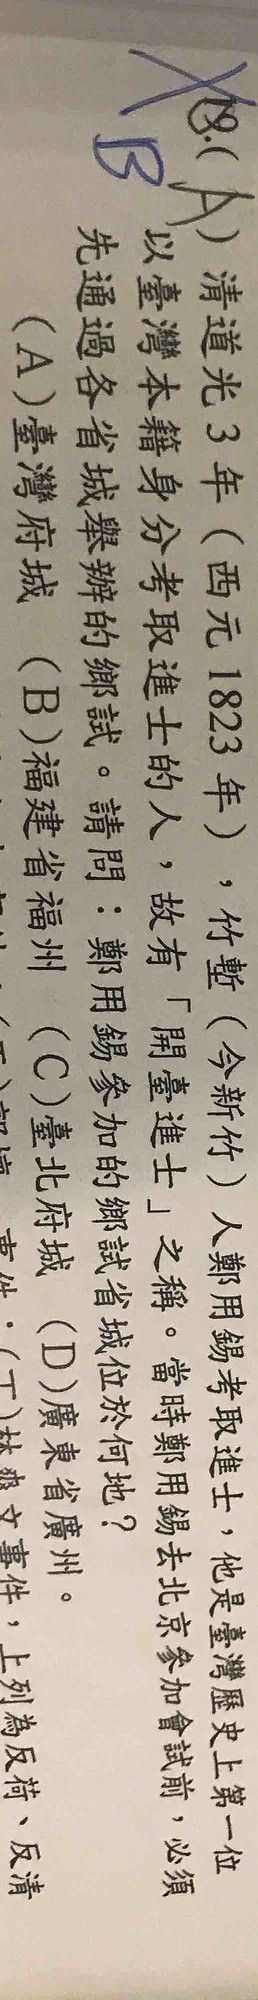 B
18.( A ) 清道光 3 年（西元 1823 年），竹塹（今新竹）人鄭用錫考取進士，他是臺灣歷史上第一位
以臺灣本籍身分考取進士的人，故有「開臺進士」之稱。當時鄭用錫去北京參加會試前，必須
先通過各省城舉辦的鄉試。請問：鄭用錫參加的鄉試省城位於何地？
（A）臺灣府城 （B）福建省福州 （C）臺北府城 （D）廣東省廣州。
事件；(丁)林爽文事件，上列為反荷、反清